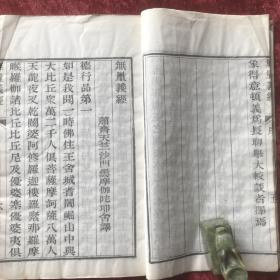 象得意頓義爲長聊舉大較談者擇焉
無量義經
蕭齊天竺沙門曇摩伽陀耶舍譯
德行品第一
如是我聞一時佛住王舍城耆闍崛山中與
大比丘衆萬二千人俱菩薩摩訶薩八萬人
天龍夜叉乾闥婆阿修羅迦樓羅緊那羅摩
睺羅伽諸比丘比丘尼及優婆塞優婆夷俱